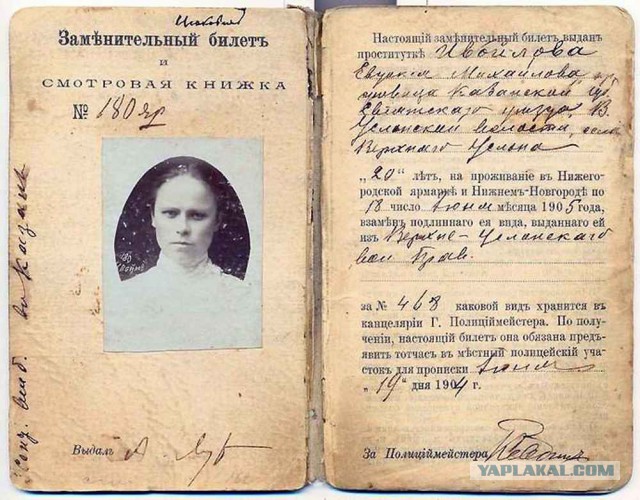 Замѣнительный билетъ
и
СМОТРОВАЯ КНИЖКА
№ 180 яр
Выдалъ
Настоящій замѣнительный билетъ выданъ
проституткѣ Ивойлова
Евдокия Михайлова
Казанской
Свіяжскаго уезда, В.
Услонской волости, села
Верхняго Услона
„20" лѣтъ, на проживаніе въ Нижего-
родской ярмаркѣ и Нижнемъ-Новгородѣ по
18 число Июня мѣсяца 1905 года,
взамѣнъ подлиннаго ея вида, выданнаго ей
изъ Верхне-Услонскаго
вол. Прав.
за № 468 каковой видъ хранится въ
канцеляріи Г. Полиціймейстера. По полу-
ченіи, настоящій билетъ она обязана предъ-
явить тотчасъ въ мѣстный полицейскій уча-
стокъ для прописки Июня
„19" дня 1904 г.
За Полиціймейстера
YAPLAKAL.COM